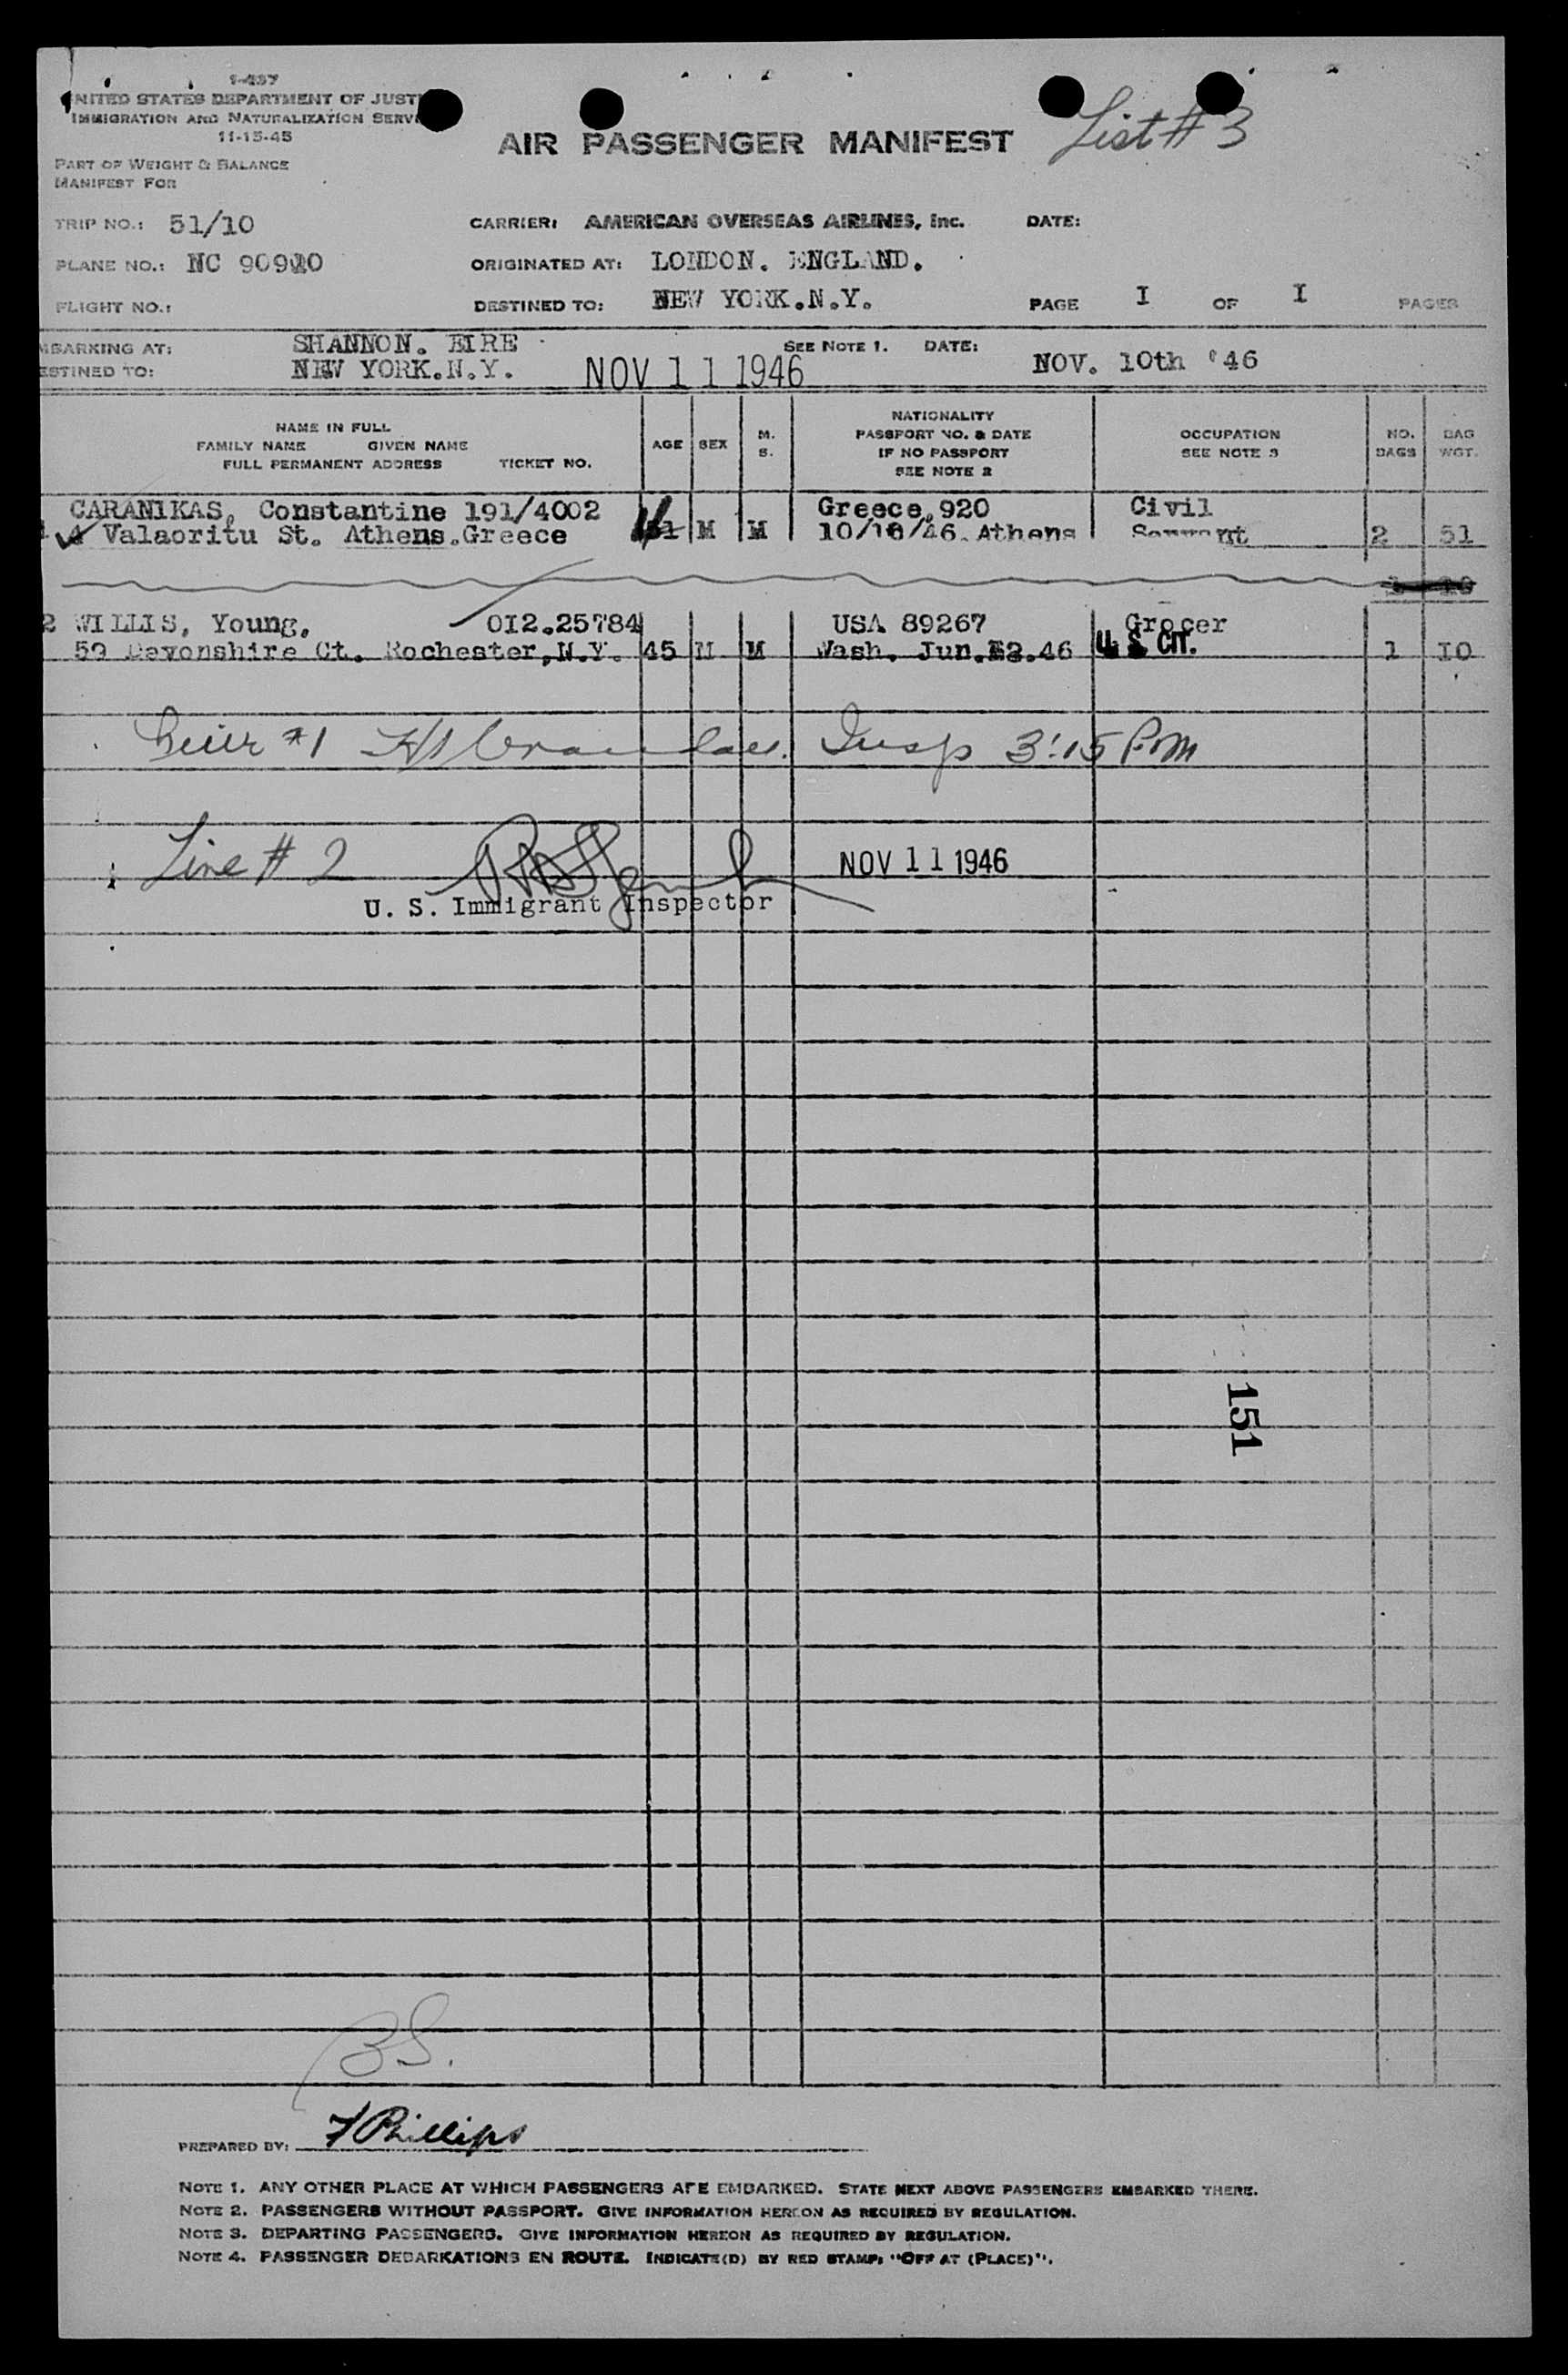 I-437
UNITED STATES DEPARTMENT OF JUST
IMMIGRATION AND NATURALIZATION SERVI
11-15-45
PART OF WEIGHT & BALANCE
MANIFEST FOR
AIR PASSENGER MANIFEST List # 3
TRIP NO.: 51/10 CARRIER: AMERICAN OVERSEAS AIRLINES, Inc. DATE:
PLANE NO.: NC 90920 ORIGINATED AT: LONDON. ENGLAND.
FLIGHT NO.: DESTINED TO: NEW YORK.N.Y. PAGE I OF I PAGES
MBARKING AT: SHANNON. EIRE SEE NOTE 1. DATE: NOV. 10th '46
ESTINED TO: NEW YORK.N.Y. NOV 11 1946
NAME IN FULL
FAMILY NAME GIVEN NAME
FULL PERMANENT ADDRESS TICKET NO.
AGE SEX M. S.
NATIONALITY
PASSPORT NO. & DATE
IF NO PASSPORT
SEE NOTE 2
OCCUPATION
SEE NOTE 3
NO. BAGS
BAG WGT.
CARANIKAS, Constantine 191/4002 Greece, 920 Civil
4 Valaoritu St. Athens.Greece M M 10/10/46. Athens Servant 2 51
2 WILLIS, Young. OI2.25784 USA 89267 Grocer
59 Devonshire Ct. Rochester,N.Y. 45 M M Wash. Jun. .46 U. S. CIT. 1 IO
#1 Insp 3:15 P.M
Line # 2 NOV 11 1946
U. S. Immigrant Inspector
151
BS.
PREPARED BY: F Phillips
NOTE 1. ANY OTHER PLACE AT WHICH PASSENGERS ARE EMBARKED. STATE NEXT ABOVE PASSENGERS EMBARKED THERE.
NOTE 2. PASSENGERS WITHOUT PASSPORT. GIVE INFORMATION HEREON AS REQUIRED BY REGULATION.
NOTE 3. DEPARTING PASSENGERS. GIVE INFORMATION HEREON AS REQUIRED BY REGULATION.
NOTE 4. PASSENGER DEBARKATIONS EN ROUTE. INDICATE(D) BY RED STAMP: "OFF AT (PLACE)".